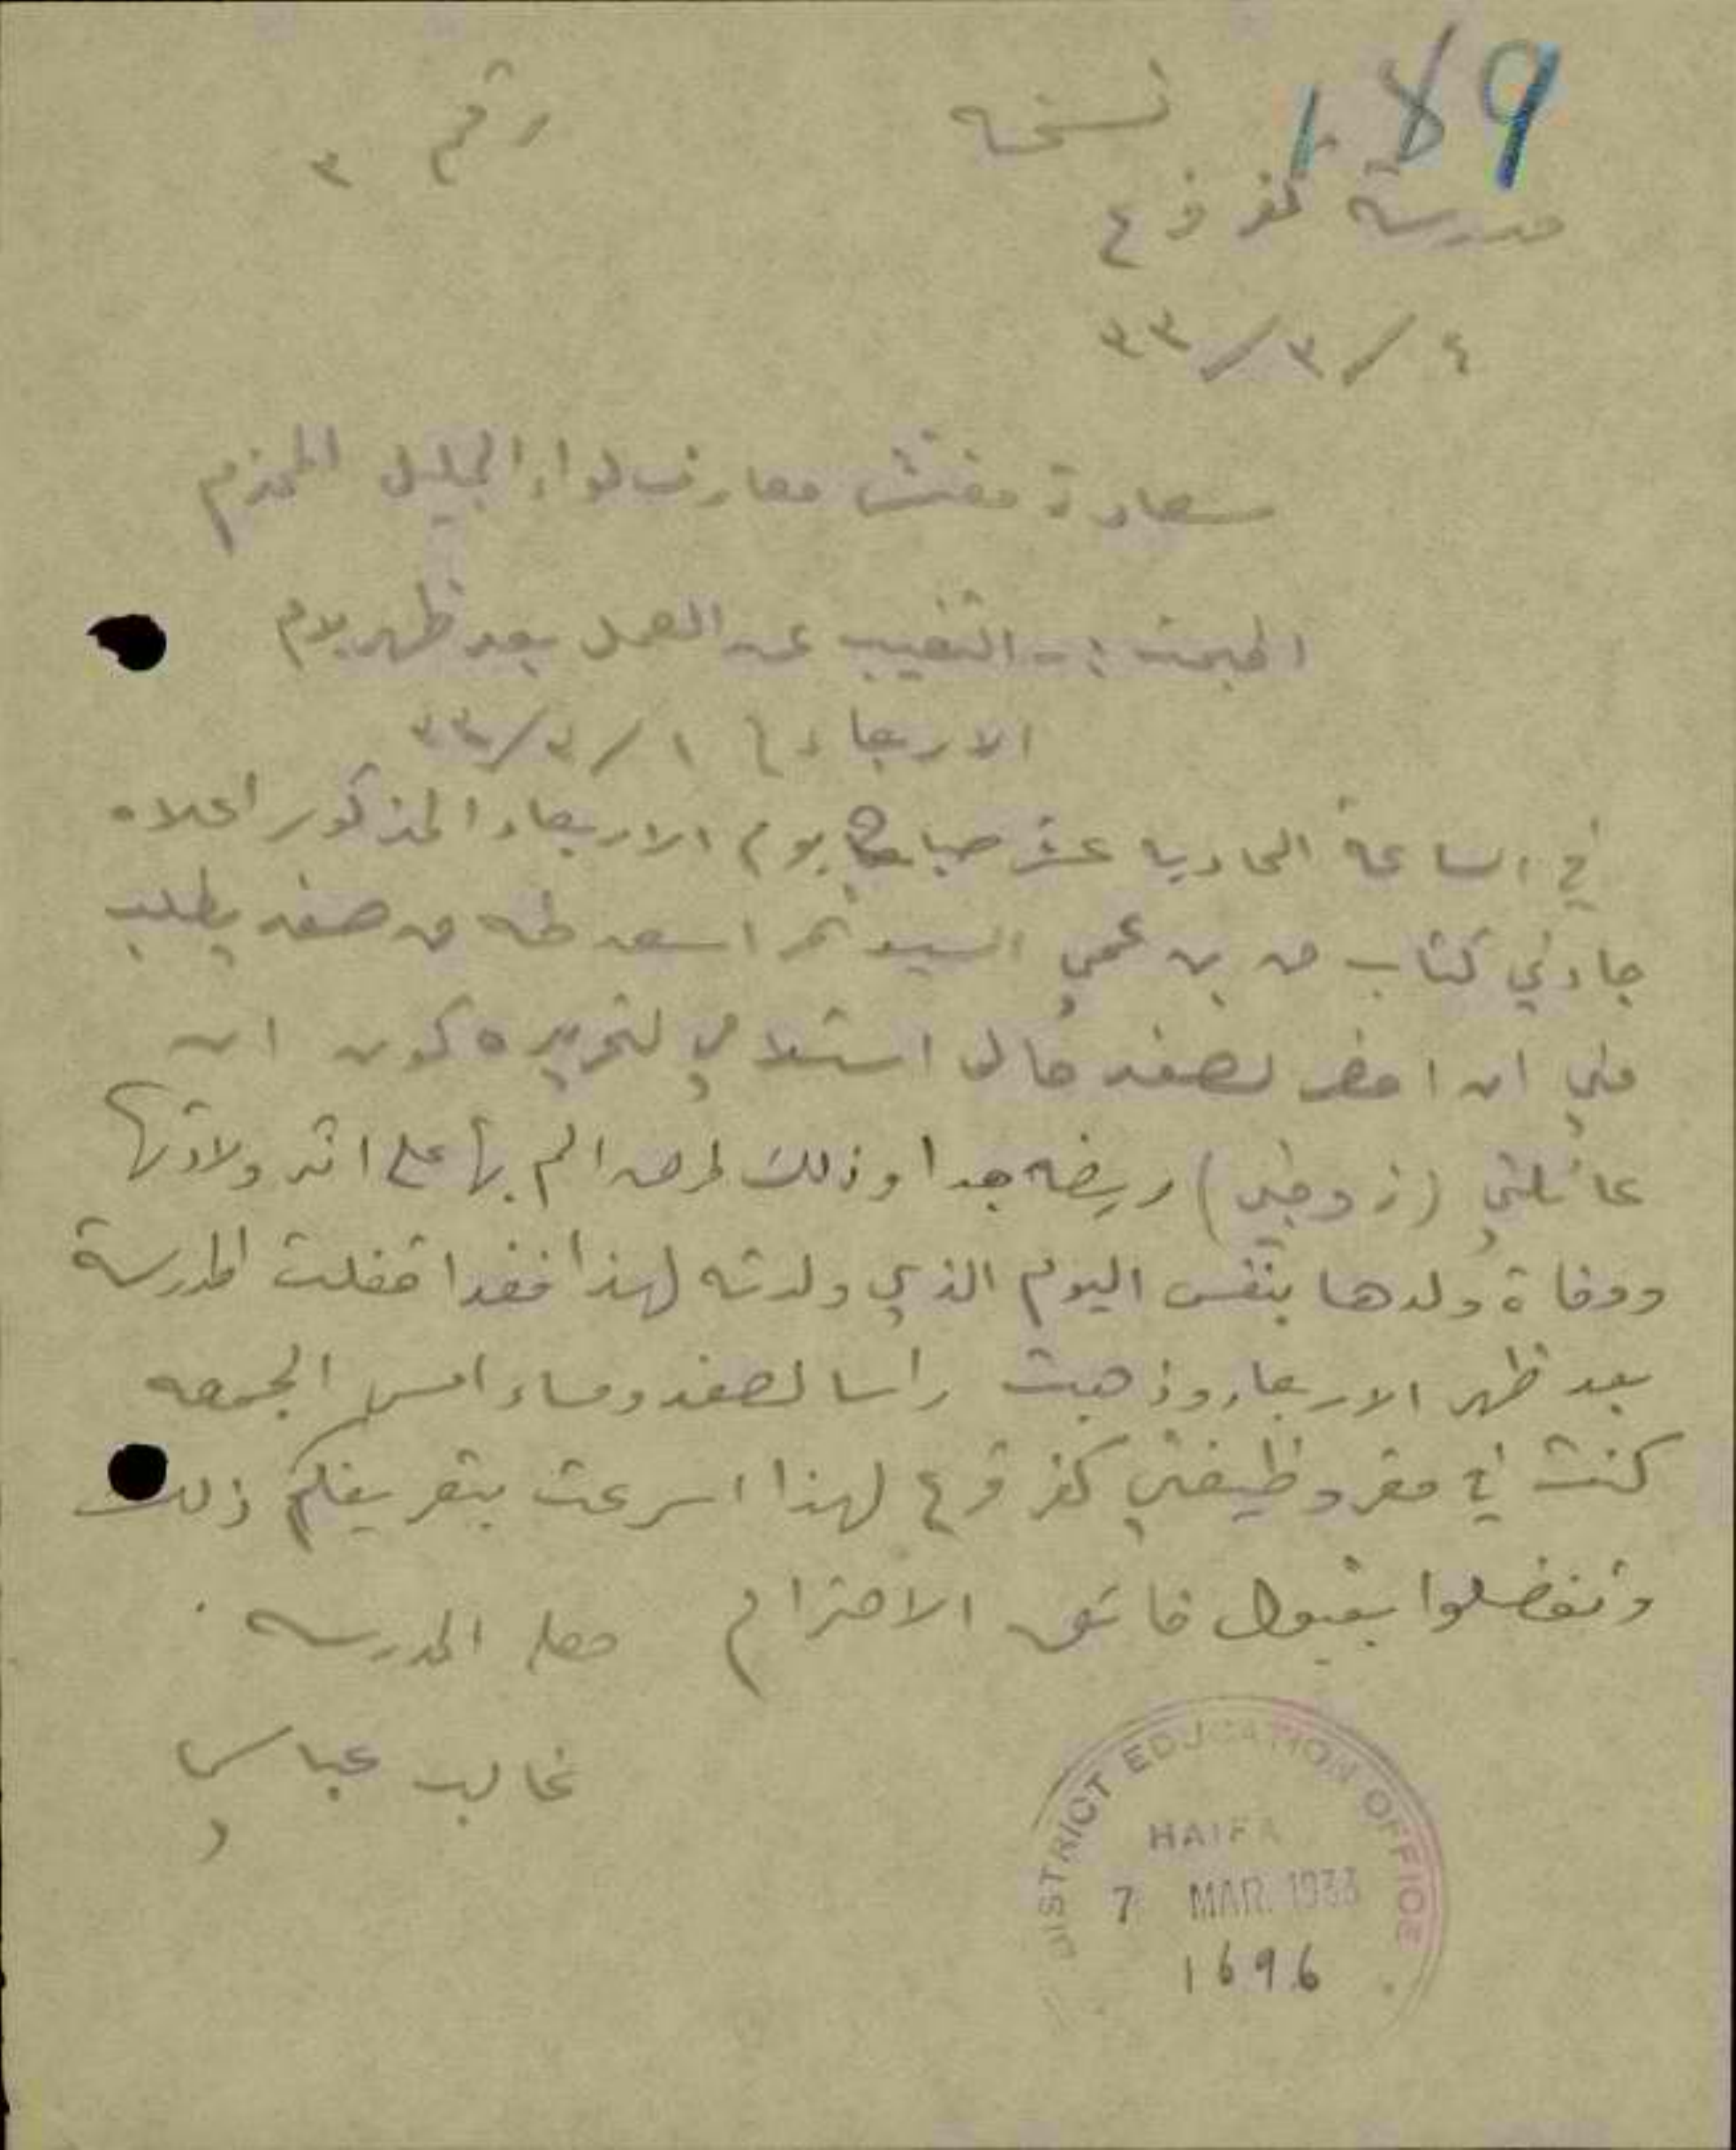 189
نسخه
رقم ٣
مدرسة كفر قرع
٤/٣/٣٣
سعادة مفتش معارف لواء الجليل المحترم
المبحث :- التغيب عن العمل بعد ظهر يوم
الاربعاء ١/٣/٣٣
في الساعة الحادية عشر صباح يوم الاربعاء المذكور اعلاه
جاءني كتاب من بن عمي السيد اسعد طه من صفد يطلب
مني ان احضر لصفد حال استلامي لتحريره كون ان
عائلتي (زوجتي) مريضه جدا وذلك لمرض الم بها على اثر ولادتها
ووفاة ولدها بنفس اليوم الذي ولدته لهذا فقد اقفلت المدرسة
بعد ظهر الاربعاء وذهبت راسا لصفد ومساء امس الجمعه
كنت في مقر وظيفتي كفر قرع لهذا اسرعت بتعريفكم ذلك
وتفضلوا بقبول فائق الاحترام معلم المدرسه .
غالب عباسي
DISTRICT EDUCATION OFFICE
HAIFA
7 MAR. 1933
1696